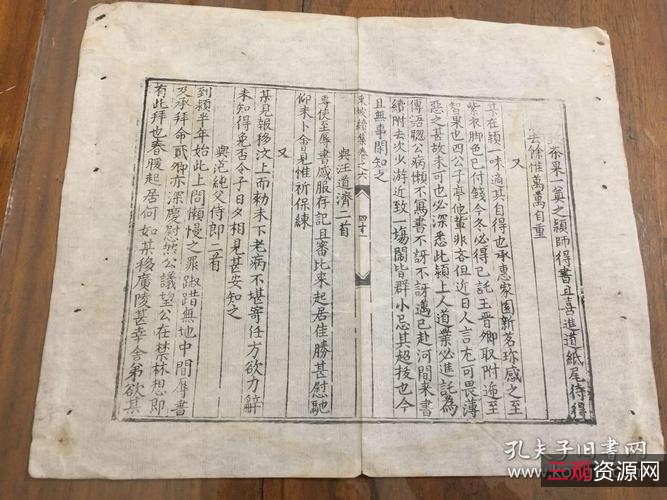 茶果一奠之穎師得書且喜進道紙尾待得
去餘惟萬萬自重
又
某在穎一味適其自得也承惠家園新茗珍感之至
紫衣脚色已付錢今冬必得已託王晉卿取附递至
智果也四公子亭他輩非吝但近日人言尤可畏薄
惡之甚故未可也必深悉此穎上人道業必進託為
傳語聰公病懶不寫書不訝不訝邁已赴河間来書
續附去次少游近致一場鬧皆群小忌其超拔也今
且無事閑知之
東坡續集卷之六
與汪道濟二首
專使至辱書感服存記且審比来起居佳勝甚慰馳
仰未卜會見惟祈保練
又
某見報移汶上而勅未下老病不堪寄任方欲力辭
未知得免否令子日夕相見甚安知之
與范純父侍郎二首
到穎半年始此上問懶慢之罪踧踖無地中間辱書
及承拜命貳卿亦深慶慰然公議望公在禁林想即
有此拜也春暖起居何如某移廣陵甚幸舍弟欲某
孔夫子旧书网
三观资源网